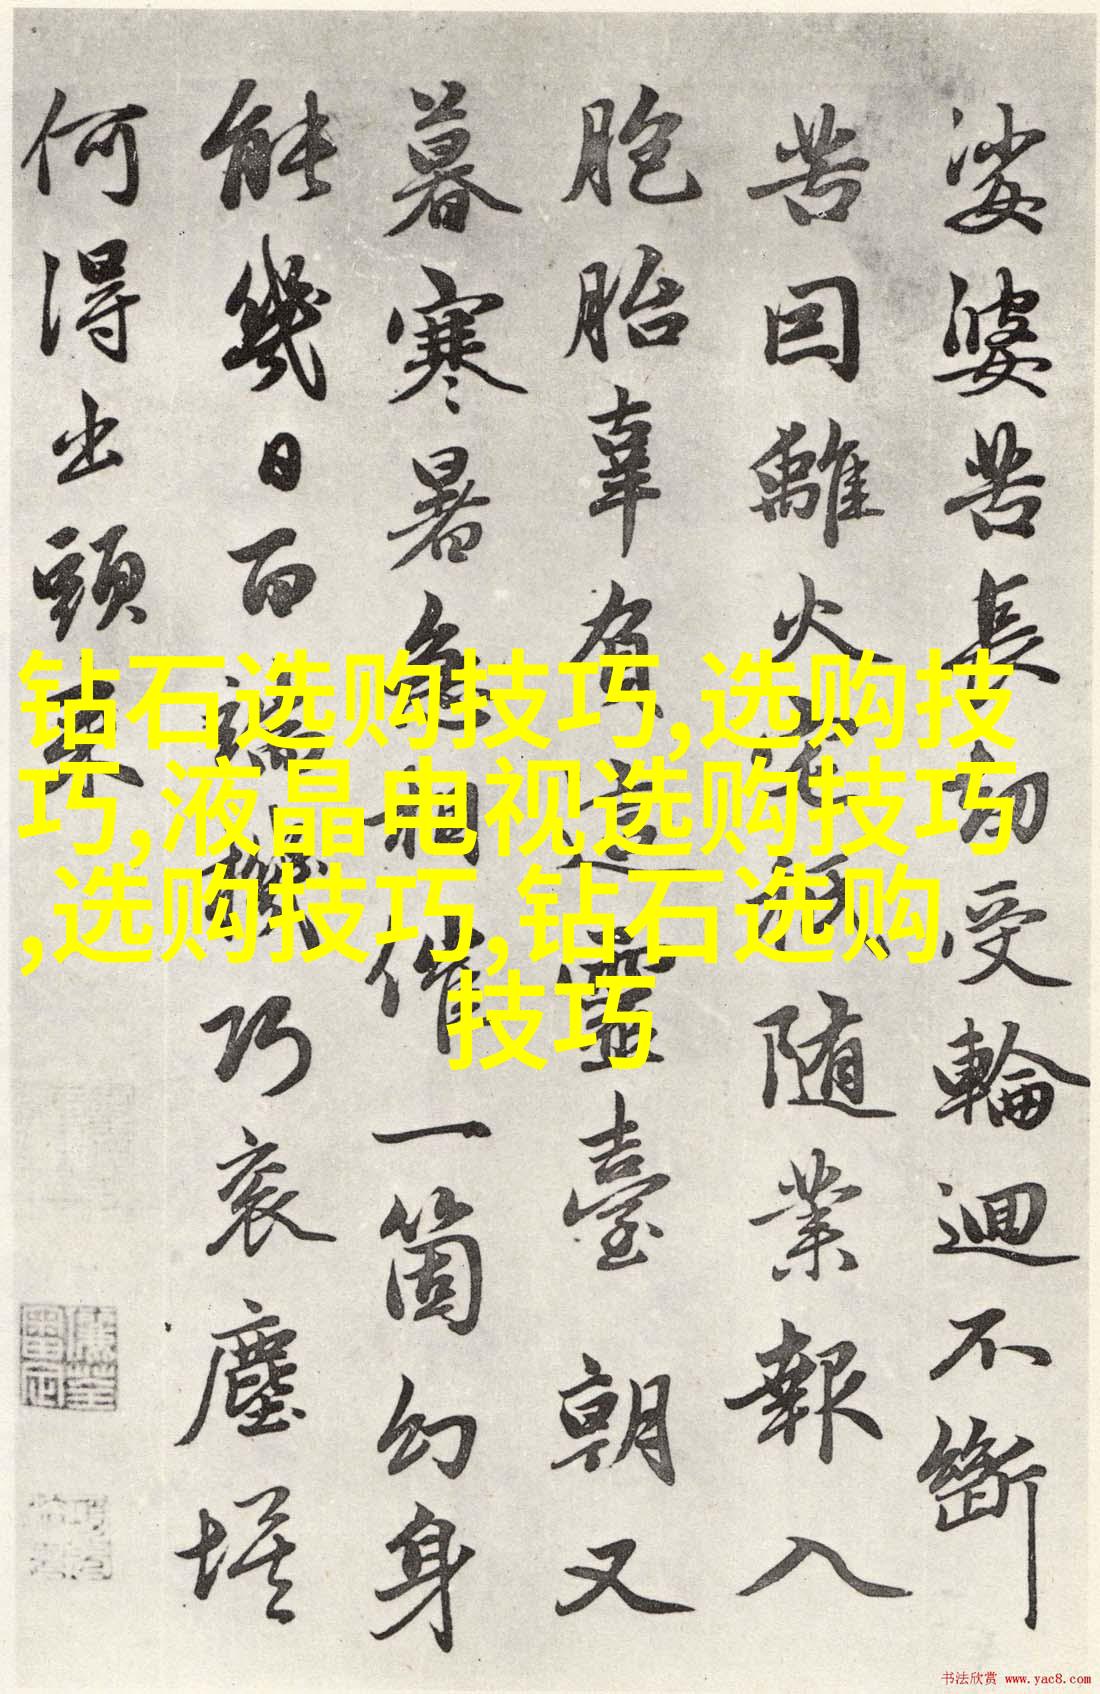 娑婆苦長劫受輪迴不斷
苦囙離火宅秪隨業報入
胞胎辜負這靈臺朝又
暮寒暑急相催一箇幻身
能幾日百端機巧衮塵埃
何得出頭来
钻石选购技巧,选购技
巧,液晶电视选购技巧
,选购技巧,钻石选购
技巧
书法欣赏 www.yac8.com